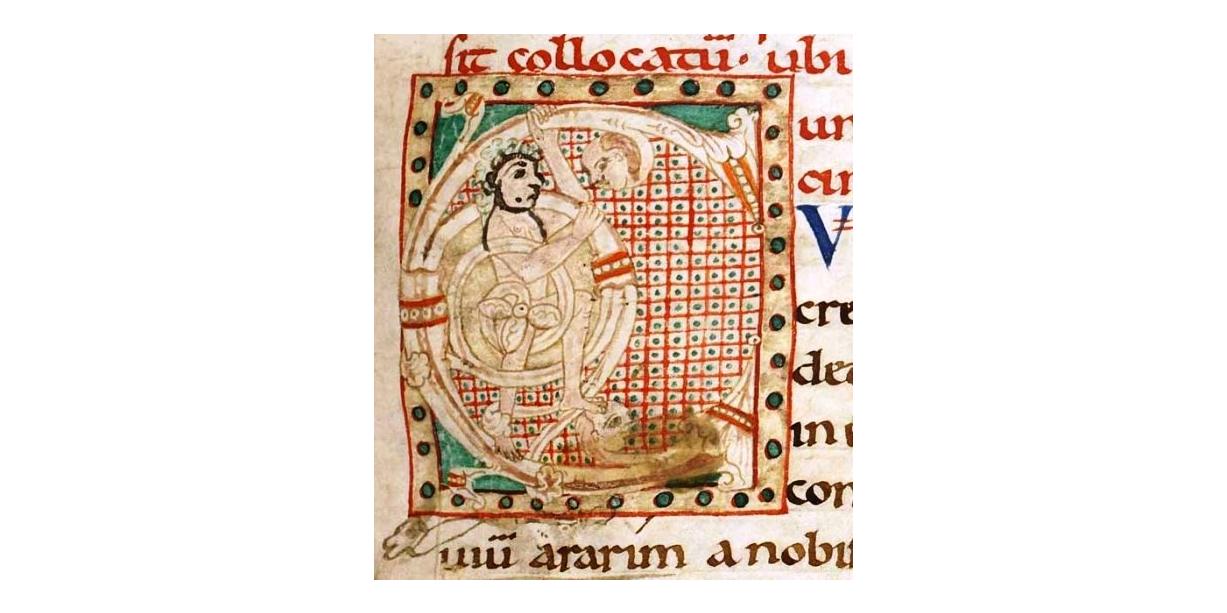 sit collocatū· ubi
un
V
cre
in
con
ararim a nobi